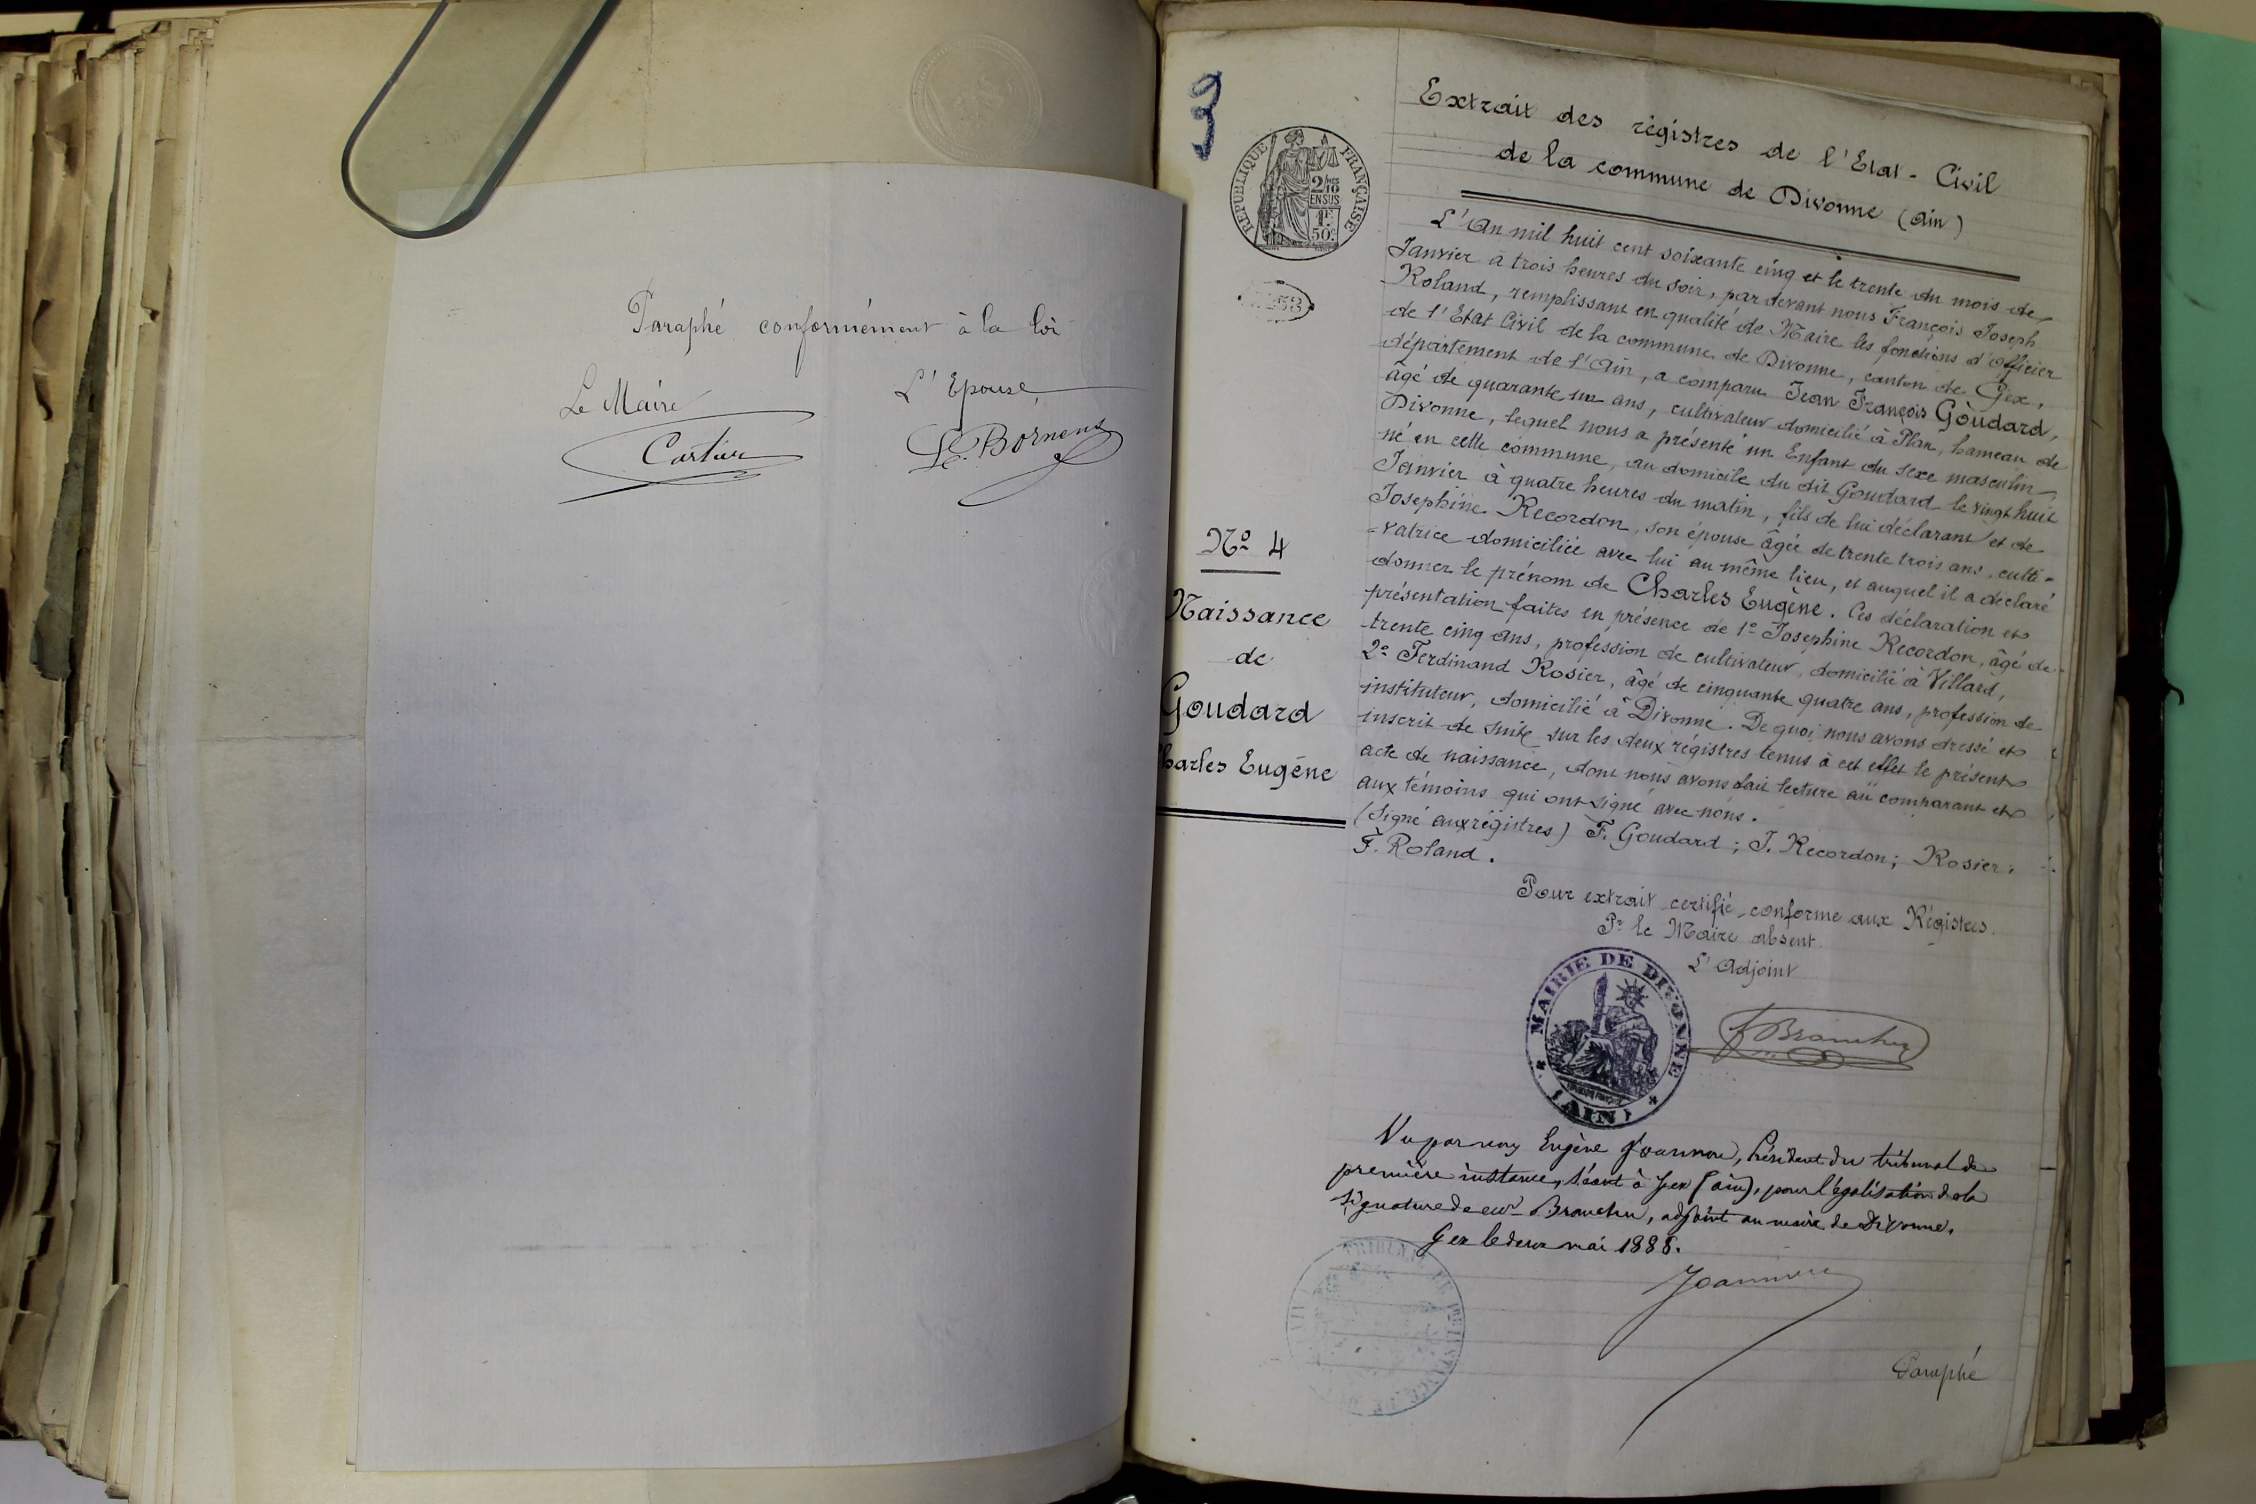 Paraphé conformément à la loi
Le Maire
L'Epouse
Cartier
3
RÉPUBLIQUE FRANÇAISE
2/10
EN SUS
1F
50c
Nº 4
Naissance
de
Goudard
Charles Eugène
Extrait des régistres de l'Etat-Civil
de la commune de Divonne (Ain)
L'An mil huit cent soixante cinq et le trente du mois de
Janvier à trois heures du soir, par devant nous François Joseph
Roland, remplissant en qualité de Maire les fonctions d'officier
de l'Etat Civil de la commune de Divonne, canton de Gex,
département de l'Ain, a comparu Jean François Goudard,
âgé de quarante un ans, cultivateur domicilié à Plan, hameau de
Divonne, lequel nous a présenté un Enfant du sexe masculin,
né en cette commune, au domicile du dit Goudard le vingt huit
Janvier à quatre heures du matin, fils de lui déclarant et de
Josephine Recordon, son épouse âgée de trente trois ans, culti-
-vatrice domiciliée avec lui au même lieu, et auquel il a déclaré
donner le prénom de Charles Eugène. Ces déclaration et
présentation faites en présence de 1º Josephine Recordon, âgé de
trente cinq ans, profession de cultivateur, domicilié à Villard,
2º Ferdinand Rosier, âgé de cinquante quatre ans, profession de
instituteur, domicilié à Divonne. De quoi nous avons dressé et
inscrit de suite sur les deux régistres tenus à cet effet le présent
acte de naissance, dont nous avons fait lecture au comparant et
aux témoins qui ont signé avec nous.
(Signé aux régistres) F. Goudard; J. Recordon; Rosier;
F. Roland.
Pour extrait certifié conforme aux Régistres.
Pr le Maire absent
L'Adjoint
MAIRIE DE DIVONNE
(AIN)
Vu par nous Eugène, Président du tribunal de
première instance, séant à Gex (ain), pour légalisation de la
signature de Mr Branchu, adjoint au maire de Divonne.
Gex le deux mai 1888.
TRIBUNAL DE 1RE INSTANCE DE
Paraphé